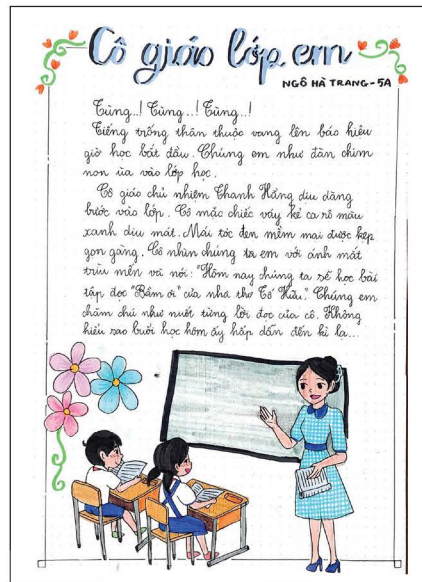 Cô giáo lớp em
NGÔ HÀ TRANG - 5A
Tùng...! Tùng...! Tùng...!
Tiếng trống thân thuộc vang lên báo hiệu
giờ học bắt đầu. Chúng em như đàn chim
non ùa vào lớp học.
Cô giáo chủ nhiệm Thanh Hằng dịu dàng
bước vào lớp. Cô mặc chiếc váy kẻ ca rô màu
xanh dịu mát. Mái tóc đen mềm mại được kẹp
gọn gàng. Cô nhìn chúng ta em với ánh mắt
trìu mến và nói: "Hôm nay chúng ta sẽ học bài
tập đọc "Bầm ơi" của nhà thơ Tố Hữu." Chúng em
chăm chú như nuốt từng lời đọc của cô. Không
hiểu sao buổi học hôm ấy hấp dẫn đến kì lạ...